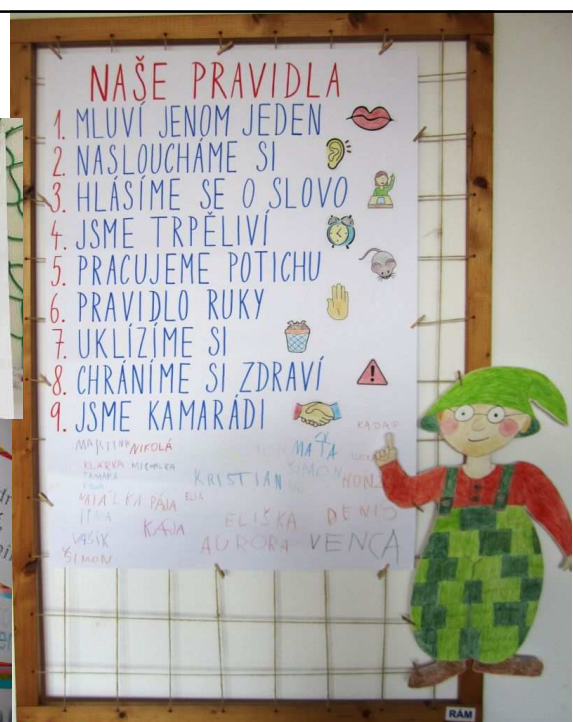 NAŠE PRAVIDLA
1. MLUVÍ JENOM JEDEN
2. NASLOUCHÁME SI
3. HLÁSÍME SE O SLOVO
4. JSME TRPĚLIVÍ
5. PRACUJEME POTICHU
6. PRAVIDLO RUKY
7. UKLÍZÍME SI
8. CHRÁNÍME SI ZDRAVÍ
9. JSME KAMARÁDI
MARTINA NIKOLA
KLÁRKA MICHALKA
KRISTIÁN
PÁJA ELA
KÁJA ELIŠKA DENIS
VAŠÍK AURORA VENCA
ŠIMON
RÁM